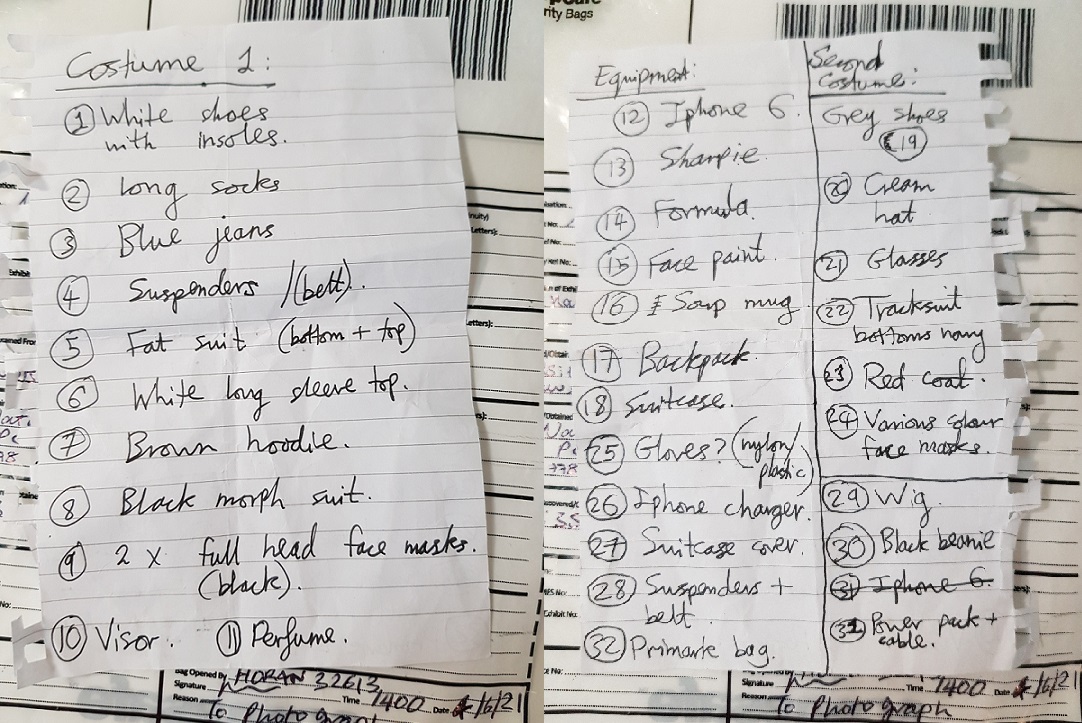 Costume 1:
① White shoes
with insoles.
② Long socks
③ Blue jeans
④ Suspenders /(belt).
⑤ Fat suit (bottom + top)
⑥ White long sleeve top.
⑦ Brown hoodie.
⑧ Black morph suit.
⑨ 2 x full head face masks.
(black).
⑩ Visor. ⑪ Perfume.
Bag Opened By HORAN 32613
Signature
Time 1400 Date /6/21
Reason To Photograph
rity Bags
Equipment:
⑫ Iphone 6.
⑬ Sharpie.
⑭ Formula.
⑮ Face paint.
⑯ Soup mug
⑰ Backpack.
⑱ Suitcase.
㉕ Gloves? (nylon/
plastic)
㉖ Iphone charger.
㉗ Suitcase cover.
㉘ Suspenders +
belt.
㉜ Primark bag.
Second
Costume:
Grey shoes
⑲
⑳ Cream
hat
㉑ Glasses
㉒ Tracksuit
bottoms navy
㉓ Red coat.
㉔ Various colour
face masks.
㉙ Wig.
㉚ Black beanie
㉛ Iphone 6.
㉛ Power pack +
cable.
Signature
Time 1400 Date /6/21
Reason To Photograph